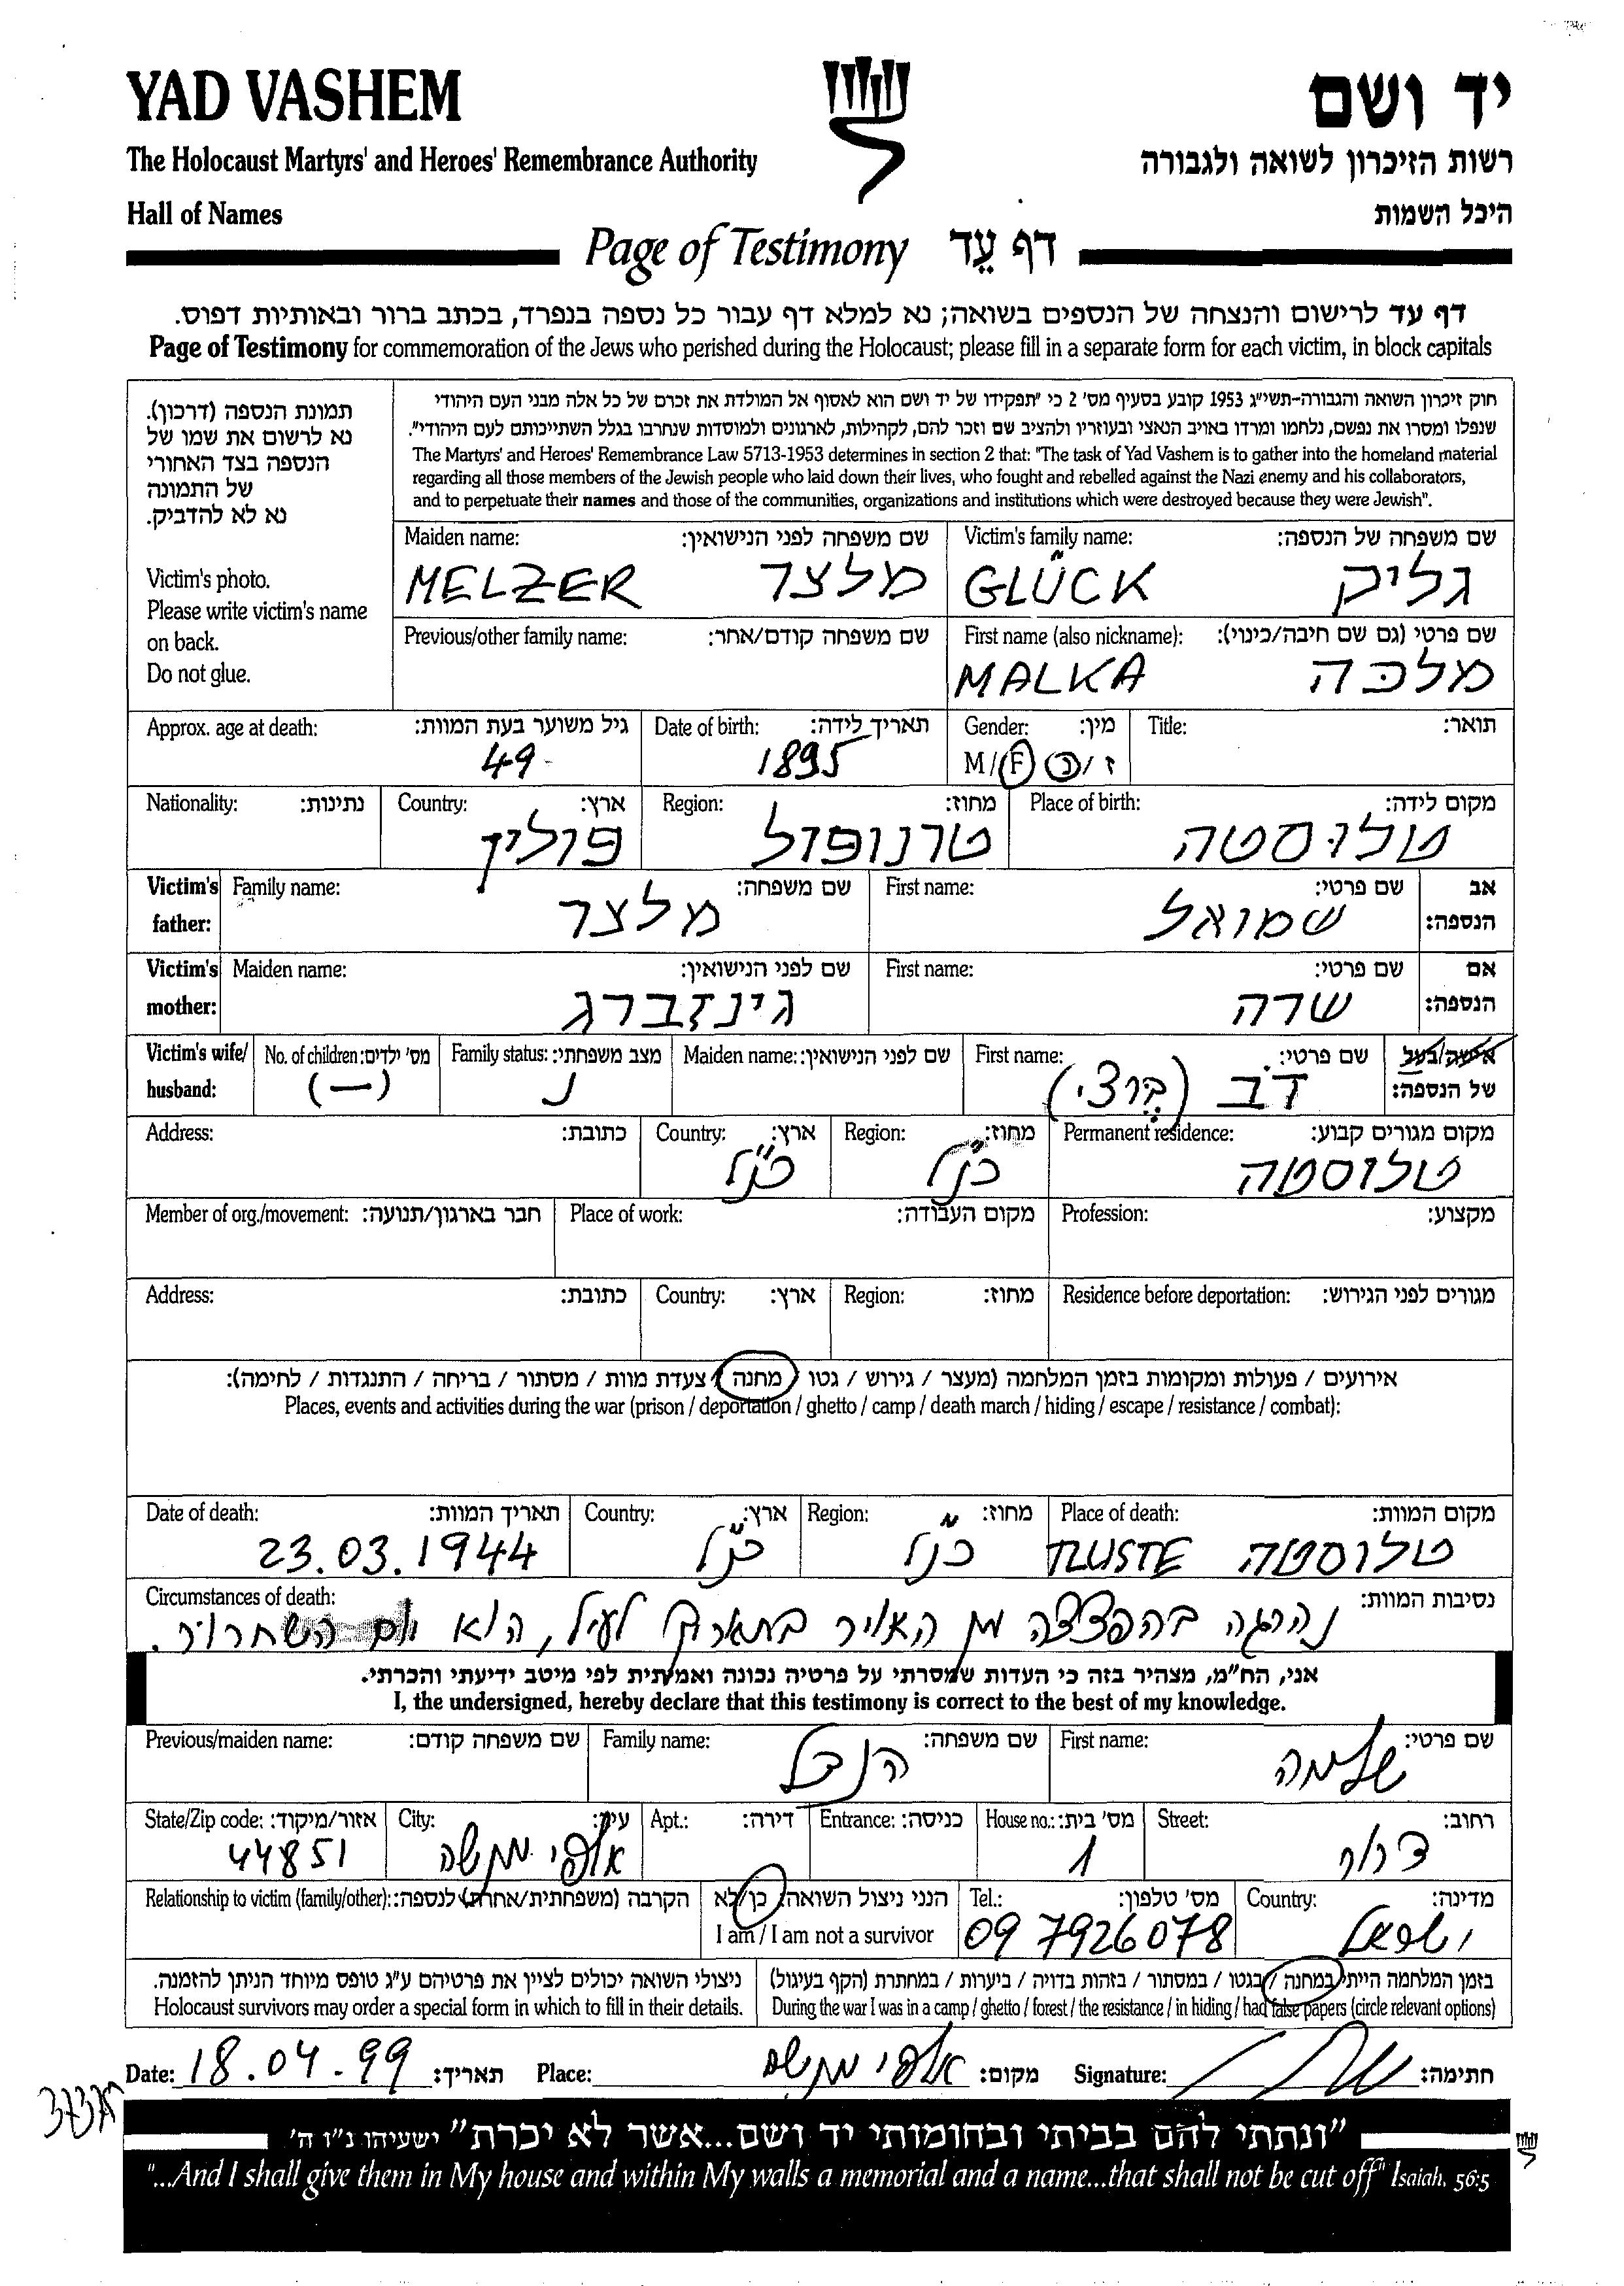 YAD VASHEM
יד ושם
The Holocaust Martyrs' and Heroes' Remembrance Authority
רשות הזיכרון לשואה ולגבורה
Hall of Names
היכל השמות
Page of Testimony דף עֵד
דף עד לרישום והנצחה של הנספים בשואה; נא למלא דף עבור כל נספה בנפרד, בכתב ברור ובאותיות דפוס.
Page of Testimony for commemoration of the Jews who perished during the Holocaust; please fill in a separate form for each victim, in block capitals
תמונת הנספה (דרכון).
נא לרשום את שמו של
הנספה בצד האחורי
של התמונה
נא לא להדביק.
Victim's photo.
Please write victim's name
on back.
Do not glue.
חוק זיכרון השואה והגבורה-תשי"ג 1953 קובע בסעיף מס' 2 כי "תפקידו של יד ושם הוא לאסוף אל המולדת את זכרם של כל אלה מבני העם היהודי
שנפלו ומסרו את נפשם, נלחמו ומרדו באויב הנאצי ובעוזריו ולהציב שם וזכר להם, לקהילות, לארגונים ולמוסדות שנחרבו בגלל השתייכותם לעם היהודי".
The Martyrs' and Heroes' Remembrance Law 5713-1953 determines in section 2 that: "The task of Yad Vashem is to gather into the homeland material
regarding all those members of the Jewish people who laid down their lives, who fought and rebelled against the Nazi enemy and his collaborators,
and to perpetuate their names and those of the communities, organizations and institutions which were destroyed because they were Jewish".
Maiden name: שם משפחה לפני הנישואין: Victim's family name: שם משפחה של הנספה:
MELZER מלצר GLÜCK גליק
Previous/other family name: שם משפחה קודם/אחר: First name (also nickname): שם פרטי (גם שם חיבה/כינוי):
MALKA מלכה
Approx. age at death: גיל משוער בעת המוות: Date of birth: תאריך לידה: Gender: מין: Title: תואר:
49 1895 M/F ז/נ
Nationality: נתינות: Country: ארץ: Region: מחוז: Place of birth: מקום לידה:
פולין טרנופול טלוסטה
Victim's Family name: שם משפחה: First name: שם פרטי: אב
father: מלצר שמואל הנספה:
Victim's Maiden name: שם לפני הנישואין: First name: שם פרטי: אם
mother: גינזברג שרה הנספה:
Victim's wife/ No. of children: מס' ילדים: Family status: מצב משפחתי: Maiden name: שם לפני הנישואין: First name: שם פרטי: אישה/בעל
husband: (—) נ דב (ברצי) של הנספה:
Address: כתובת: Country: ארץ: Region: מחוז: Permanent residence: מקום מגורים קבוע:
כנ"ל כנ"ל טלוסטה
Member of org./movement: חבר בארגון/תנועה: Place of work: מקום העבודה: Profession: מקצוע:
Address: כתובת: Country: ארץ: Region: מחוז: Residence before deportation: מגורים לפני הגירוש:
אירועים / פעולות ומקומות בזמן המלחמה (מעצר / גירוש / גטו / מחנה / צעדת מוות / מסתור / בריחה / התנגדות / לחימה):
Places, events and activities during the war (prison / deportation / ghetto / camp / death march / hiding / escape / resistance / combat):
Date of death: תאריך המוות: Country: ארץ: Region: מחוז: Place of death: מקום המוות:
23.03.1944 כנ"ל כנ"ל TLUSTE טלוסטה
Circumstances of death: נסיבות המוות:
נהרגה בהפצצה מן האויר בתאריך לעיל, הוא יום השחרור.
אני, הח"מ, מצהיר בזה כי העדות שמסרתי על פרטיה נכונה ואמיתית לפי מיטב ידיעתי והכרתי.
I, the undersigned, hereby declare that this testimony is correct to the best of my knowledge.
Previous/maiden name: שם משפחה קודם: Family name: שם משפחה: First name: שם פרטי:
הנדל שלמה
State/Zip code: אזור/מיקוד: City: עיר: Apt.: דירה: Entrance: כניסה: House no.: מס' בית: Street: רחוב:
44851 אלפי מנשה 1 דרור
Relationship to victim (family/other): הקרבה (משפחתית/אחרת) לנספה: הנני ניצול השואה: כן/לא Tel.: מס' טלפון: Country: מדינה:
I am / I am not a survivor 09 7926078 ישראל
ניצולי השואה יכולים לציין את פרטיהם ע"ג טופס מיוחד הניתן להזמנה. בזמן המלחמה הייתי במחנה / בגטו / במסתור / בזהות בדויה / ביערות / במחתרת (הקף בעיגול)
Holocaust survivors may order a special form in which to fill in their details. During the war I was in a camp / ghetto / forest / the resistance / in hiding / had false papers (circle relevant options)
Date: 18.04.99 תאריך: Place: אלפי מנשה מקום: Signature: חתימה:
"ונתתי להם בביתי ובחומותי יד ושם...אשר לא יכרת" ישעיהו נ"ו ה'
"...And I shall give them in My house and within My walls a memorial and a name...that shall not be cut off" Isaiah. 56:5